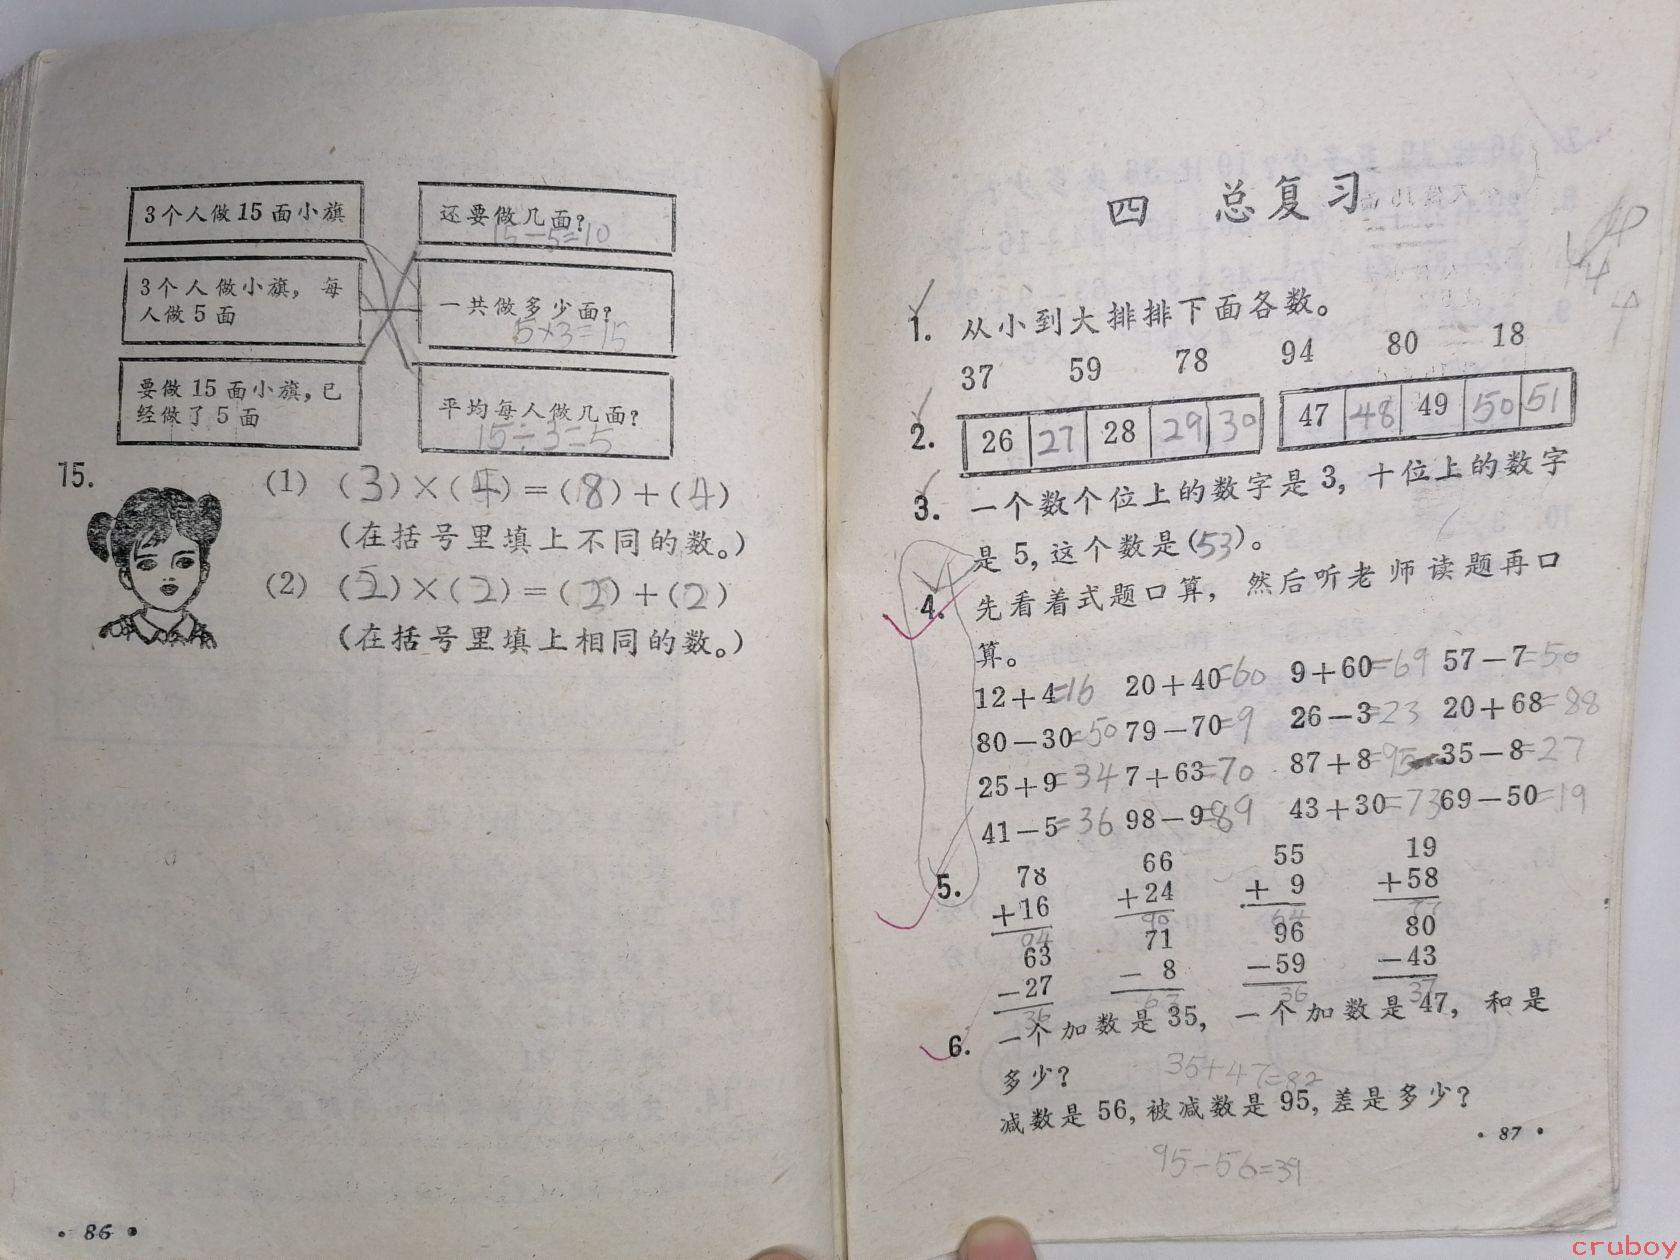 3个人做15面小旗
还要做几面?
15-5=10
3个人做小旗，每
人做5面
一共做多少面?
5×3=15
要做15面小旗，已
经做了5面
平均每人做几面?
15÷3=5
15.
(1) (3)×(4)=(8)+(4)
(在括号里填上不同的数。)
(2) (2)×(2)=(2)+(2)
(在括号里填上相同的数。)
· 86 ·
四 总复习
1. 从小到大排排下面各数。
37 59 78 94 80 18
2. 26 27 28 29 30 47 48 49 50 51
3. 一个数个位上的数字是3，十位上的数字
是5，这个数是(53)。
4. 先看着式题口算，然后听老师读题再口
算。
12+4=16 20+40=60 9+60=69 57-7=50
80-30=50 79-70=9 26-3=23 20+68=88
25+9=34 7+63=70 87+8=95 35-8=27
41-5=36 98-9=89 43+30=73 69-50=19
5. 78 66 55 19
+16 +24 +9 +58
94 90 64 77
63 71 96 80
-27 -8 -59 -43
36 63 36 37
6. 一个加数是35，一个加数是47，和是
多少?
35+47=82
减数是56，被减数是95，差是多少?
95-56=39
· 87 ·
cruboy